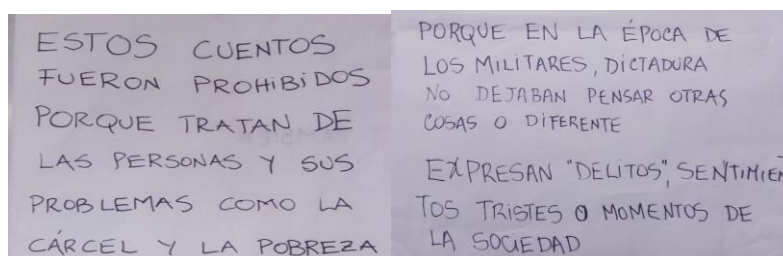 ESTOS CUENTOS
FUERON PROHIBIDOS
PORQUE TRATAN DE
LAS PERSONAS Y SUS
PROBLEMAS COMO LA
CÁRCEL Y LA POBREZA
PORQUE EN LA ÉPOCA DE
LOS MILITARES, DICTADURA
NO DEJABAN PENSAR OTRAS
COSAS O DIFERENTE
EXPRESAN "DELITOS", SENTIMIEN
TOS TRISTES O MOMENTOS DE
LA SOCIEDAD